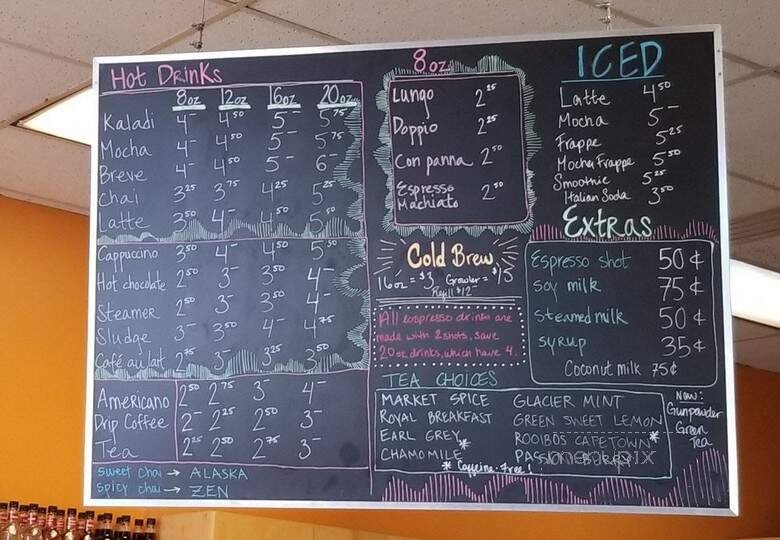 Hot Drinks
8oz 12oz 16oz 20oz
Kaladi 4- 4.50 5- 5.75
Mocha 4- 4.50 5- 5.75
Breve 4- 4.50 5- 6-
Chai 3.25 3.75 4.25 5.25
Latte 3.50 4- 4.50 5.50
Cappuccino 3.50 4- 4.50 5.50
Hot chocolate 2.50 3- 3.50 4-
Steamer 2.50 3- 3.50 4-
Sludge 3- 3.50 4- 4.75
Café au lait 2.75 3- 3.25 3.50
Americano 2.50 2.75 3- 4-
Drip Coffee 2- 2.25 2.50 3-
Tea 2.25 2.50 2.75 3-
sweet chai → ALASKA
spicy chai → ZEN
8oz
Lungo 2.25
Doppio 2.25
Con panna 2.50
Espresso
Machiato 2.50
Cold Brew
16oz = $3 Growler = $15
Refill $12
All espresso drinks are
made with 2 shots, save
20oz drinks, which have 4.
ICED
Latte 4.50
Mocha 5-
Frappe 5.25
Mocha Frappe 5.50
Smoothie 5.25
Italian Soda 3.50
Extras
Espresso shot 50¢
Soy milk 75¢
Steamed milk 50¢
syrup 35¢
Coconut milk 75¢
TEA CHOICES
MARKET SPICE GLACIER MINT
ROYAL BREAKFAST GREEN SWEET LEMON
EARL GREY ROOIBOS CAPETOWN*
CHAMOMILE*
* Caffeine-Free!
New:
Gunpowder
Green
Tea
menupix